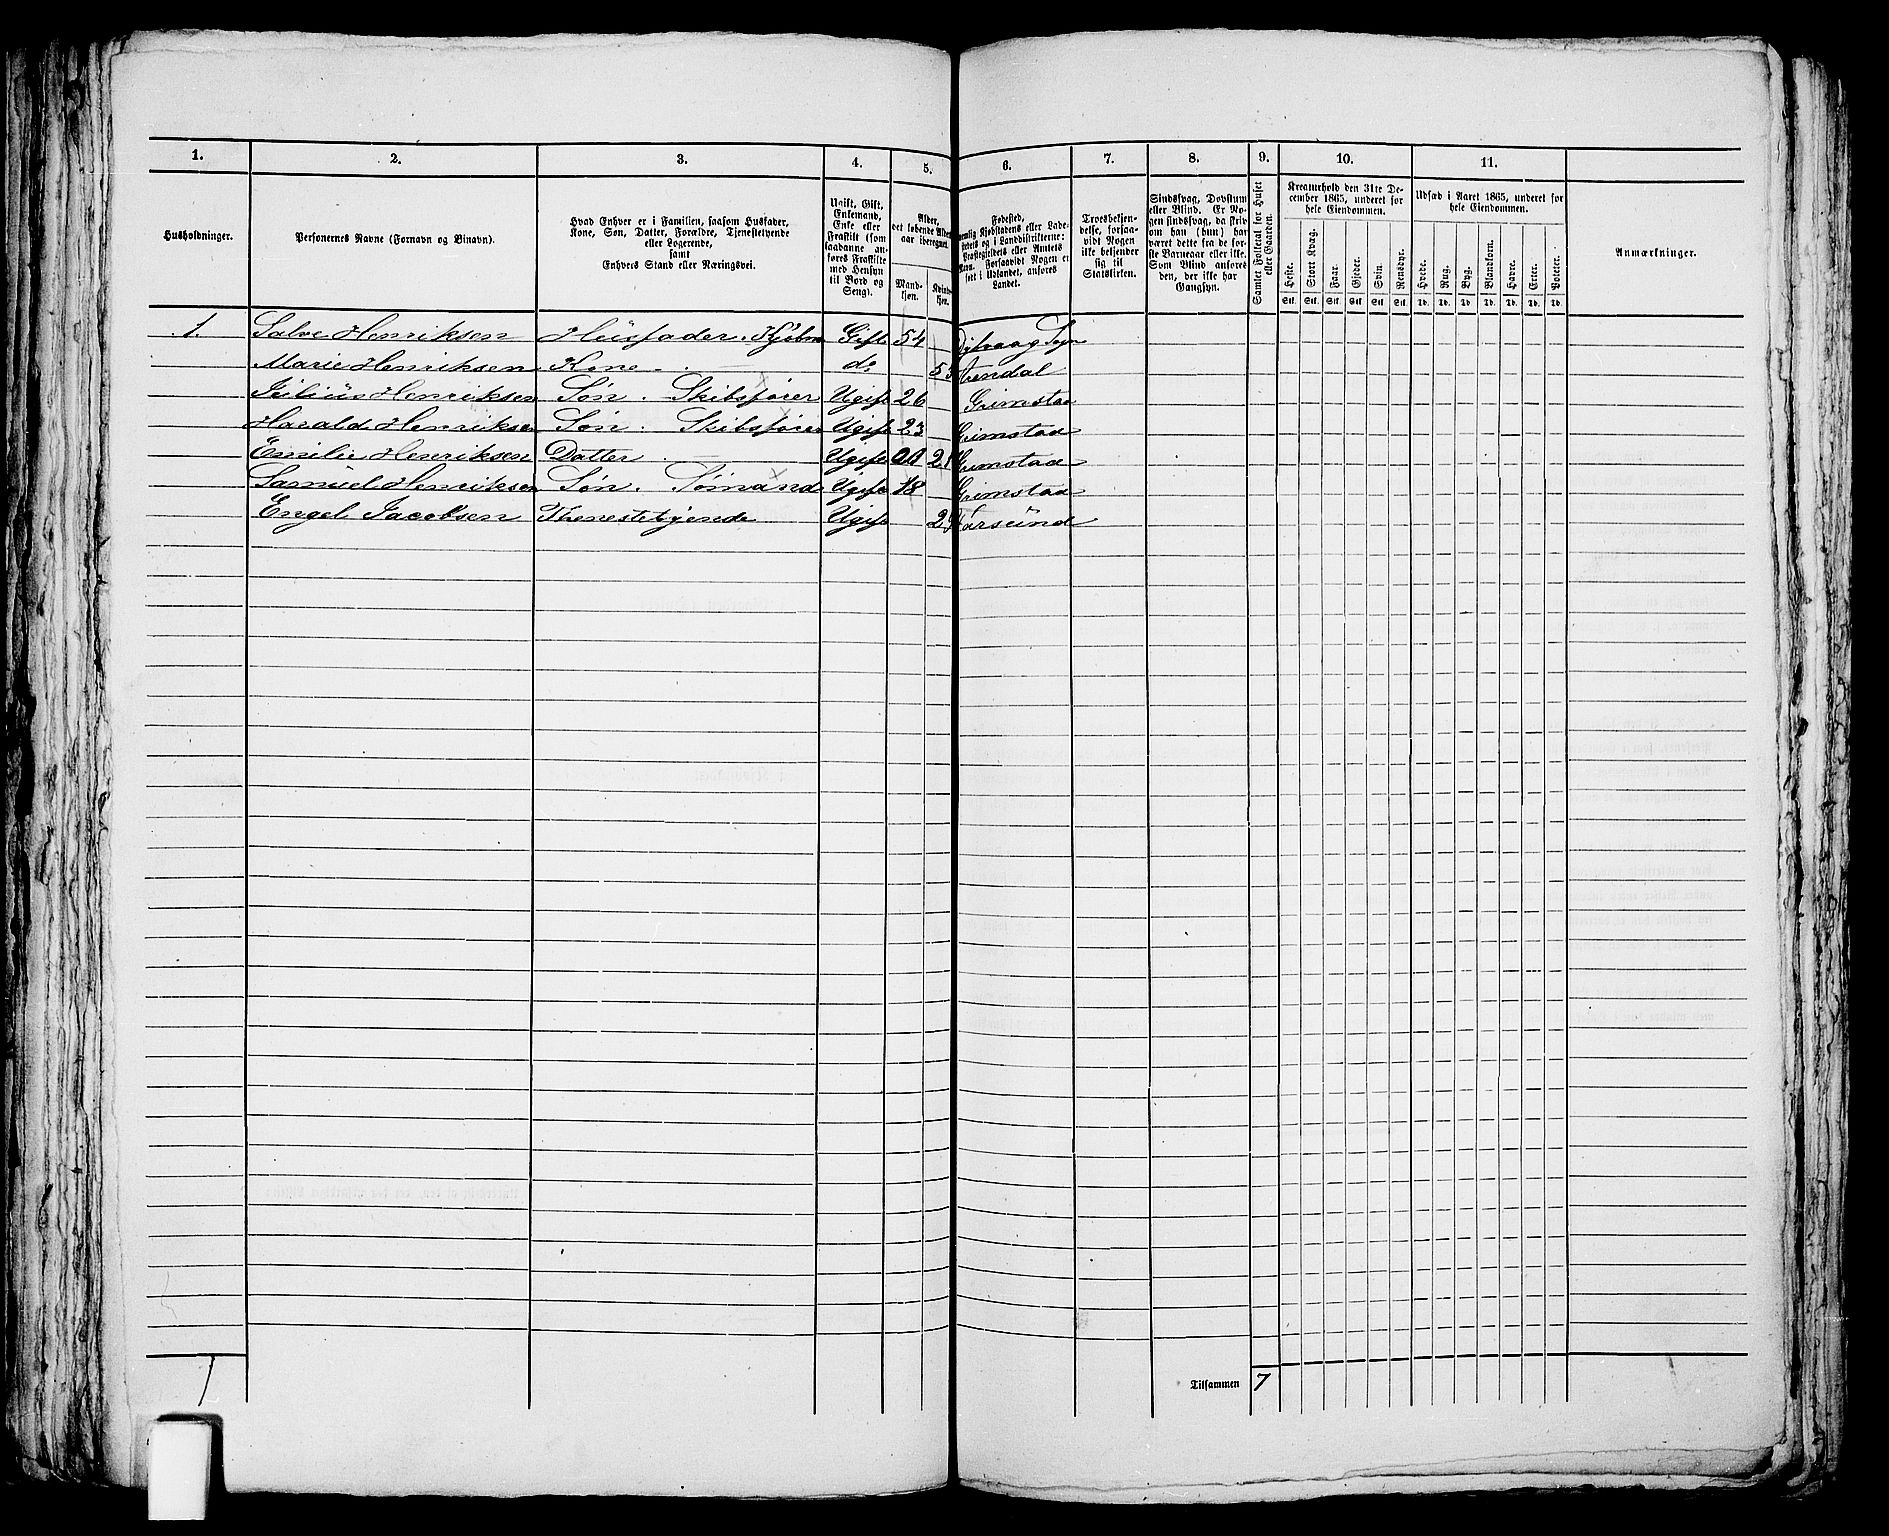 1. 2. 3. 4. 5. 6. 7. 8. 9. 10. 11.
Husholdninger.
Personernes Navne (Fornavn og Binavn).
Hvad Enhver er i Familien, saasom Husfader,
Kone, Søn, Datter, Forældre, Tjenestetyende
eller Logerende,
samt
Enhvers Stand eller Næringsvei.
Ugift, Gift,
Enkemand,
Enke eller
Fraskilt (som
saadanne an-
føres Fraskilte
med Hensyn
til Bord og
Seng).
Alder,
det løbende Alders-
aar iberegnet.
Mand-
kjøn.
Kvinde-
kjøn.
Fødested,
nemlig Kjøbstadens eller Lade-
stedets og i Landdistrikterne:
Præstegjeldets eller Amtets
Navn. Forsaavidt Nogen er
født i Udlandet, anføres
Landet.
Troesbekjen-
delse, forsaa-
vidt Nogen
ikke bekjender
sig til
Statskirken.
Sindssvag, Døvstum
eller Blind. Er No-
gen sindssvag, da skriv
om han (hun) har
været dette fra de før-
ste Barneaar eller ikke.
Som Blind anføres
den, der ikke har
Gangsyn.
Samlet Folketal for Huset
eller Gaarden.
Kreaturhold den 31te De-
cember 1865, underet for
hele Eiendommen.
Heste. Stort Kvæg. Faar. Gjeder. Svin. Rensdyr.
Stk. Stk. Stk. Stk. Stk. Stk.
Udsæd i Aaret 1865, underet for
hele Eiendommen.
Hvede. Rug. Byg. Blandkorn. Havre. Erter. Poteter.
Td. Td. Td. Td. Td. Td. Td.
Anmærkninger.
1. Salve Henriksen Husfader. Kjøbm Gift 54 Dybvaag Sogn
Marie Henriksen Kone do 53 Arendal
Julius Henriksen Søn. Skibsfører Ugift 26 Grimstad
Harald Henriksen Søn. Skibsfører Ugift 23 Grimstad
Emilie Henriksen Datter Ugift 21 Grimstad
Samuel Henriksen Søn. Sømand Ugift 18 Grimstad
Engel Jacobsen Thenestetyende Ugift Farsund
1
Tilsammen 7